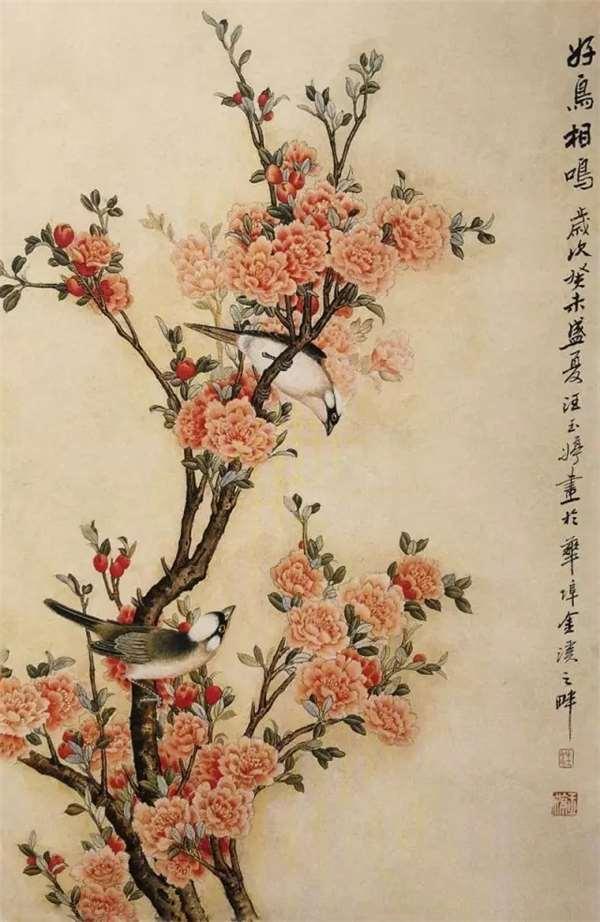 好鳥相鳴
歲次癸未盛夏汪玉婷畫於華埠金溪之畔